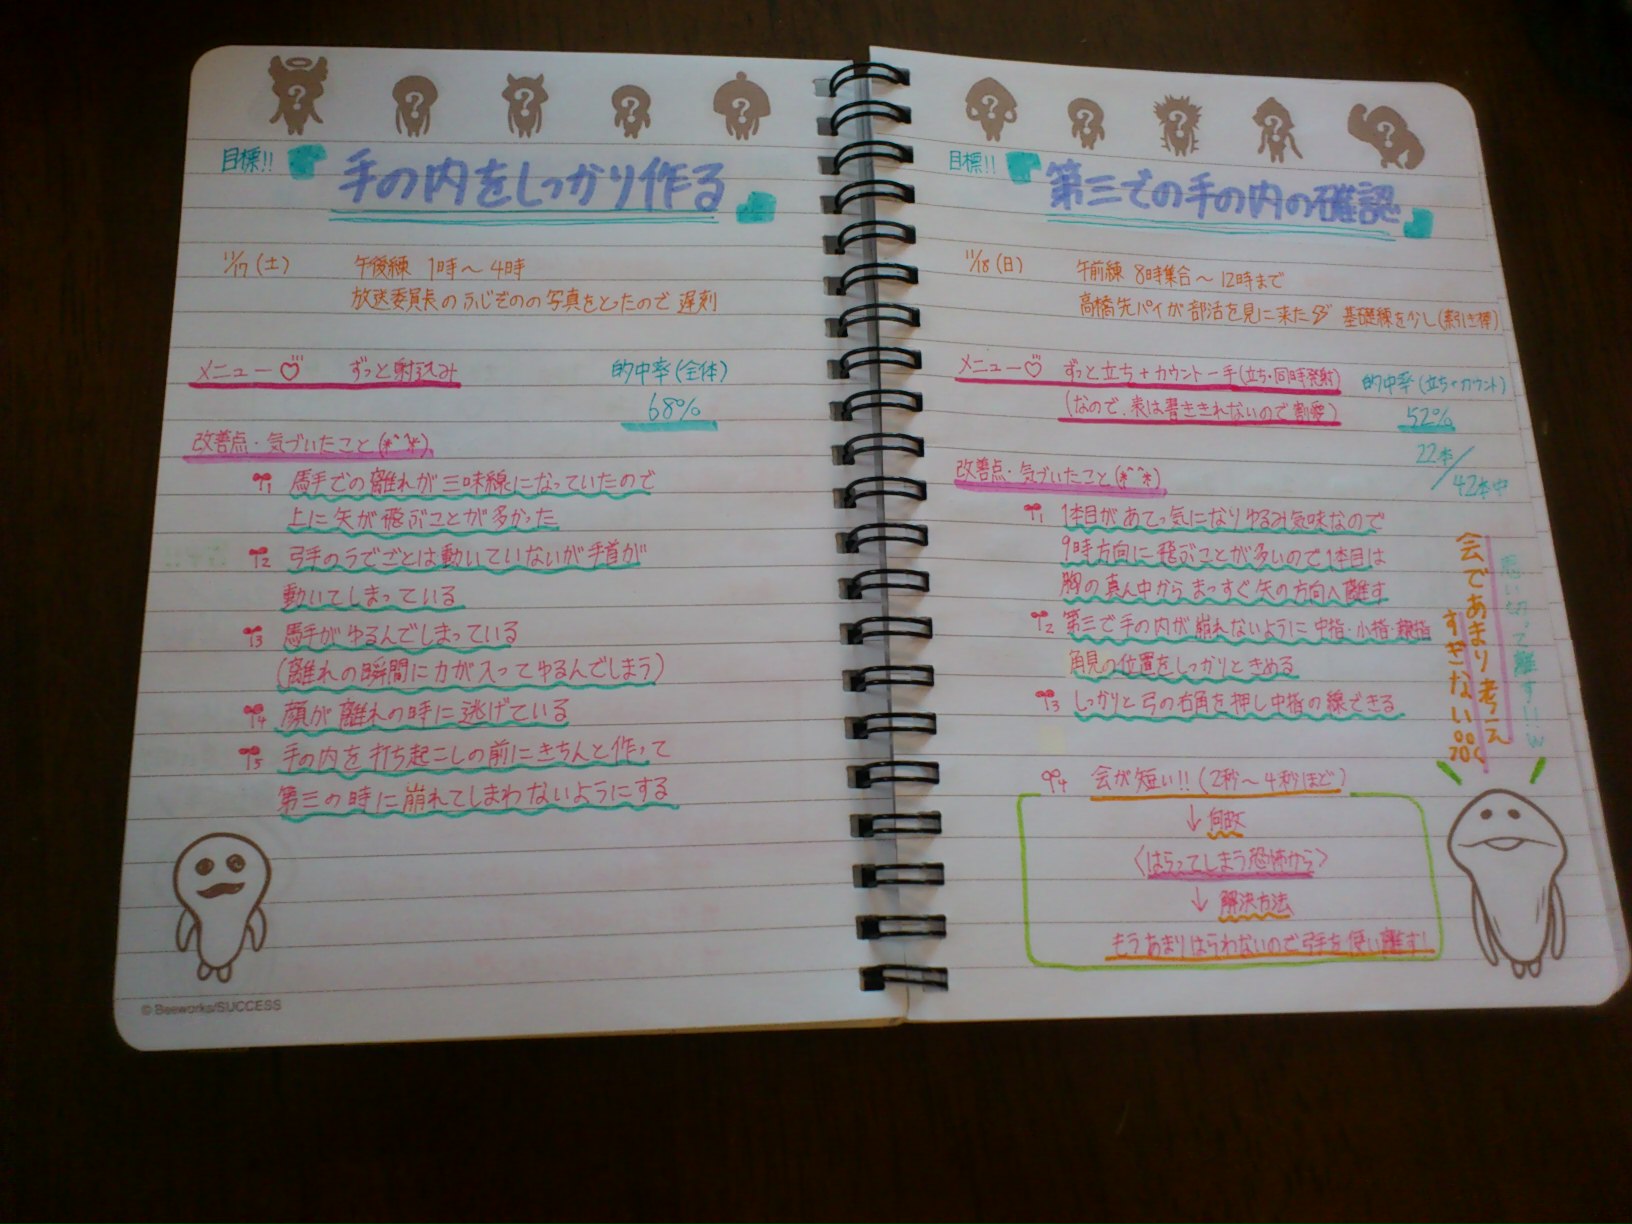 目標!! 「手の内をしっかり作る」
11/17(土) 午後練 1時～4時
放送委員長のふじぞのの写真をとったので遅刻
メニュー♡ ずっと射込み 的中率(全体)
68%
改善点・気づいたこと(*^^*)
1 馬手での離れが三味線になっていたので
上に矢が飛ぶことが多かった
2 弓手のうでごとは動いていないが手首が
動いてしまっている
3 馬手がゆるんでしまっている
(離れの瞬間に力が入ってゆるんでしまう)
4 顔が離れの時に逃げている
5 手の内を打ち起こしの前にきちんと作って
第三の時に崩れてしまわないようにする
© Beeworks/SUCCESS
目標!! 「第三での手の内の確認」
11/18(日) 午前練 8時集合～12時まで
高橋先パイが部活を見に来た 基礎練を少し(素引き禅)
メニュー♡ ずっと立ち+カウント一手(立ち・同時発射) 的中率(立ち+カウント)
(なので、表は書ききれないので割愛) 52%
22本/42本中
改善点・気づいたこと(*^^*)
1 1本目があてっ気になりゆるみ気味なので
9時方向に飛ぶことが多いので1本目は
胸の真ん中からまっすぐ矢の方向へ離す
2 第三で手の内が崩れないように中指・小指・親指
角見の位置をしっかりときめる
3 しっかりと弓の右角を押し中指の線できる
4 会が短い!!(2秒～4秒ほど)
↓何故
〈はらってしまう恐怖から〉
↓解決方法
もうあまりはらわないので弓手を使い離す!
会であまり考え
すぎない
思い切って離す!!w